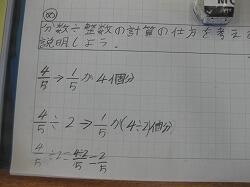 め
分数÷整数の計算の仕方を考え
説明しよう。
4/5 → 1/5 が 4個分
4/5 ÷ 2 → 1/5 が(4÷2)個分
4/5 ÷ 2 = 4÷2/5 = 2/5